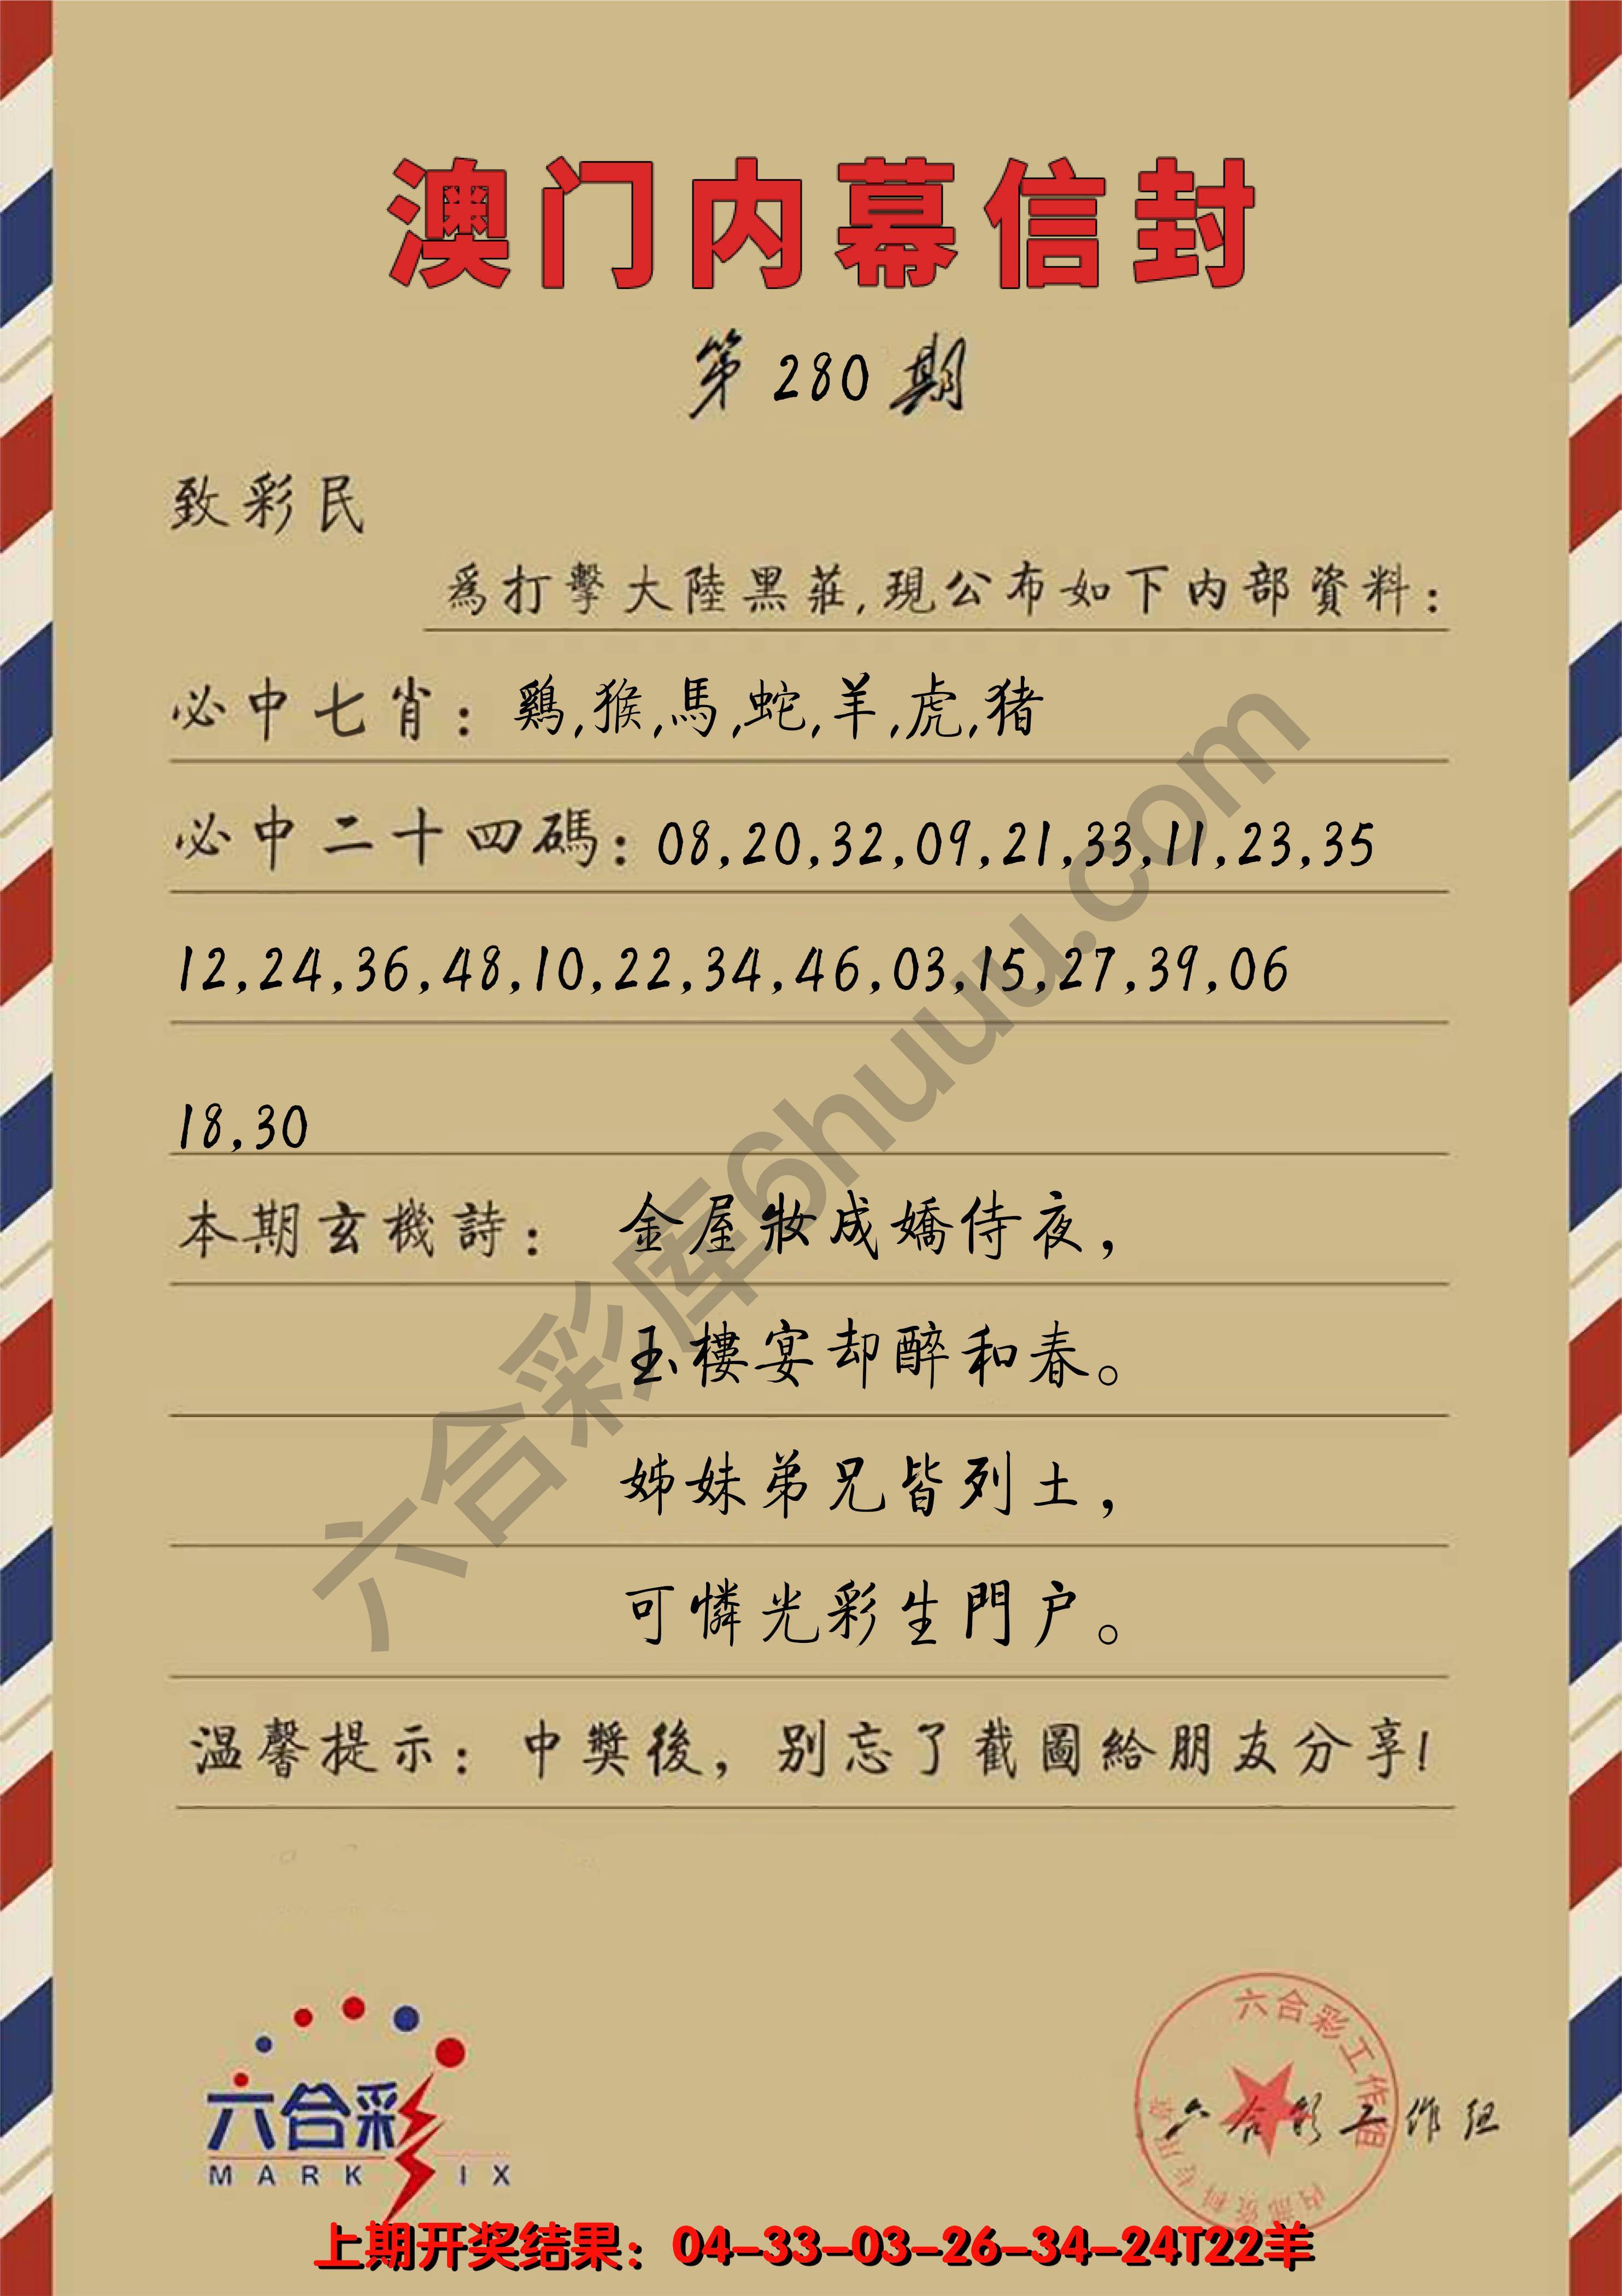 澳门内幕信封
第 280 期
致彩民
爲打擊大陸黑莊,現公布如下内部資料:
必中七肖: 鷄,猴,馬,蛇,羊,虎,猪
必中二十四碼: 08,20,32,09,21,33,11,23,35
12,24,36,48,10,22,34,46,03,15,27,39,06
18,30
本期玄機詩: 金屋妝成嬌侍夜,
玉樓宴却醉和春。
姊妹弟兄皆列土,
可憐光彩生門户。
温馨提示: 中獎後, 别忘了截圖給朋友分享!
六合彩库6huuu.com
六合彩
MARK IX
六合彩工作组
内部资料专用章
六合彩工作组
上期开奖结果: 04-33-03-26-34-24T22羊